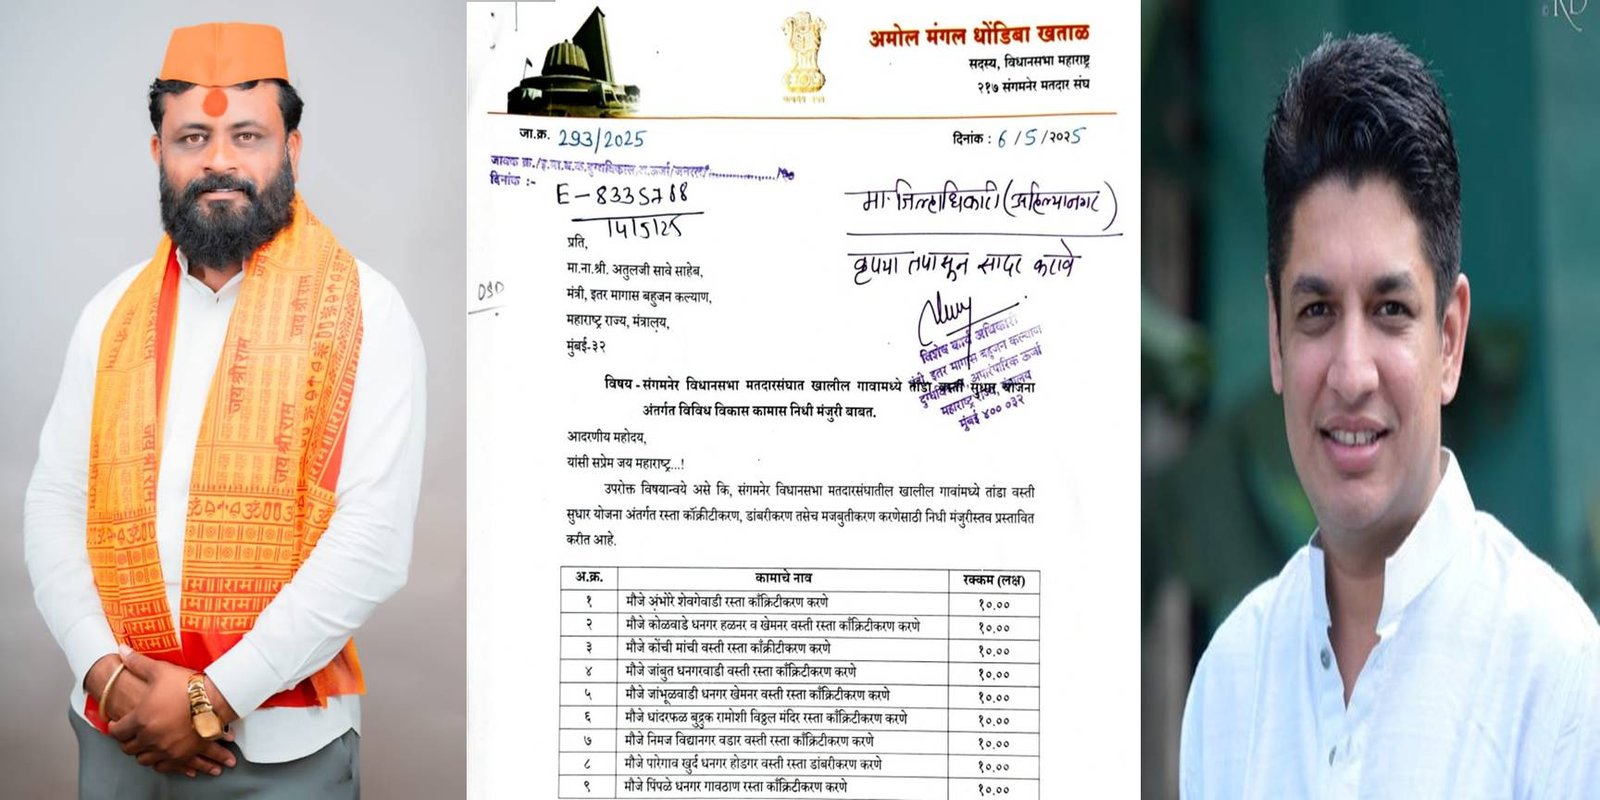 अमोल मंगल धोंडिबा खताळ
सदस्य, विधानसभा महाराष्ट्र
२१७ संगमनेर मतदार संघ
जा.क्र. 293/2025
दिनांक : 6/5/२०२5
जावक क्र./इ.मा.ब.क.दुग्धविकास,अ.ऊर्जा/जनदरबार/
दिनांक :-
E-8335768
14/5/25
मा. जिल्हाधिकारी (अहिल्यानगर)
कृपया तपासून सादर करावे
प्रति,
मा.ना.श्री. अतुलजी सावे साहेब,
मंत्री, इतर मागास बहुजन कल्याण,
महाराष्ट्र राज्य, मंत्रालय,
मुंबई-३२
विशेष कार्य अधिकारी
मंत्री, इतर मागास बहुजन कल्याण
दुग्धविकास, अपारंपारिक ऊर्जा
महाराष्ट्र राज्य, मंत्रालय
मुंबई ४०० ०३२
विषय - संगमनेर विधानसभा मतदारसंघात खालील गावामध्ये तांडा वस्ती सुधार योजना
अंतर्गत विविध विकास कामास निधी मंजुरी बाबत.
आदरणीय महोदय,
यांसी सप्रेम जय महाराष्ट्र...!
उपरोक्त विषयान्वये असे कि, संगमनेर विधानसभा मतदारसंघातील खालील गावांमध्ये तांडा वस्ती
सुधार योजना अंतर्गत रस्ता कॉंक्रीटीकरण, डांबरीकरण तसेच मजबुतीकरण करणेसाठी निधी मंजुरीस्तव प्रस्तावित
करीत आहे.
अ.क्र. कामाचे नाव रक्कम (लक्ष)
१ मौजे अंभोरे शेवगेवाडी रस्ता काँक्रिटीकरण करणे १०.००
२ मौजे कोळवाडे धनगर हळनर व खेमनर वस्ती रस्ता काँक्रिटीकरण करणे १०.००
३ मौजे कोंची मांची वस्ती रस्ता काँक्रीटीकरण करणे १०.००
४ मौजे जांबुत धनगरवाडी वस्ती रस्ता काँक्रिटीकरण करणे १०.००
५ मौजे जांभूळवाडी धनगर खेमनर वस्ती रस्ता काँक्रिटीकरण करणे १०.००
६ मौजे धांदरफळ बुद्रुक रामोशी विठ्ठल मंदिर रस्ता काँक्रिटीकरण करणे १०.००
७ मौजे निमज विद्यानगर वडार वस्ती रस्ता काँक्रिटीकरण करणे १०.००
८ मौजे पारेगाव खुर्द धनगर होडगर वस्ती रस्ता डांबरीकरण करणे १०.००
९ मौजे पिंपळे धनगर गावठाण रस्ता काँक्रिटीकरण करणे १०.००
जय श्री राम